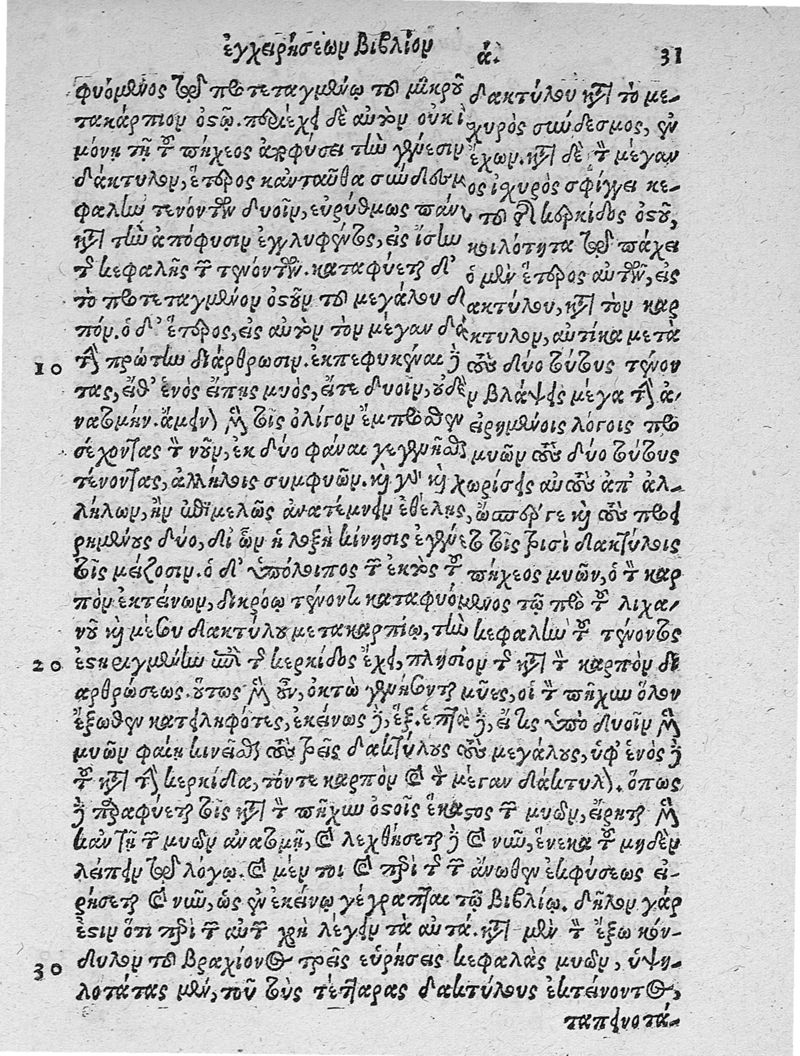 ἐγχειρήσεων Βιβλίον ά. 31
φυόμενος τῷ προτεταγμένῳ τοῦ μικροῦ δακτύλου κατὰ τὸ με-
τακάρπιον ὀστῷ. περιέχει δὲ αὐτὸν οὐκ ἰσχυρὸς σύνδεσμος, ἐν
μόνῃ τῇ τοῦ πήχεος ἀποφύσει τὴν γένεσιν ἔχων. κατὰ δὲ τὸν μέγαν
δάκτυλον, ἕτερος κἀνταῦθα σύνδεσμος ἰσχυρὸς σφίγγει κε-
φαλὴν τενόντων δυοῖν, εὐρύθμως πάνυ τοῦ τῆς κερκίδος ὀστοῦ,
κατὰ τὴν ἀπόφυσιν ἐγγλυφέντος, εἰς ἴσην κοιλότητα τῷ πάχει
τῆς κεφαλῆς τῶν τενόντων. καταφύεται δ' ὁ μὲν ἕτερος αὐτῶν, εἰς
τὸ προτεταγμένον ὀστοῦν τοῦ μεγάλου δακτύλου, κατὰ τὸν καρ
πόν. ὁ δ' ἕτερος, εἰς αὐτὸν τὸν μέγαν δάκτυλον, αὐτίκα μετὰ
10 τὴν πρώτην διάρθρωσιν. ἐκπεφυκέναι δὲ τοὺς δύο τούτους τένον
τας, εἴθ' ἑνὸς εἴπῃς μυὸς, εἴτε δυοῖν, οὐδὲν βλάψεις μέγα τὴν ἀ-
νατομήν. ἄμεινον μὲν τοῖς ὀλίγον ἔμπροσθεν εἰρημένοις λόγοις προ
σέχοντας τὸν νοῦν, ἐκ δύο φάναι γεγενῆσθαι μυῶν τοὺς δύο τούτους
τένοντας, ἀλλήλοις συμφυῶν. καὶ γὰρ καὶ χωρίσεις αὐτοὺς ἀπ' ἀλ-
λήλων, ἢν ἐπιμελῶς ἀνατέμνειν ἐθέλῃς, ὥσπερ γε καὶ τοὺς προει
ρημένους δύο, δι' ὧν ἡ λοξὴ κίνησις ἐγένετο τοῖς τρισὶ δακτύλοις
τοῖς μείζοσιν. ὁ δ' ὑπόλοιπος τῶν ἐκτὸς τοῦ πήχεος μυῶν, ὁ τὸν καρ
πὸν ἐκτείνων, δικρόῳ τένοντι καταφυόμενος τῷ πρὸ τοῦ λιχα-
νοῦ καὶ μέσου δακτύλου μετακαρπίῳ, τὴν κεφαλὴν τοῦ τένοντος
20 ἐστηριγμένην ἐπὶ τῆς κερκίδος ἔχει, πλησίον τῆς κατὰ τὸν καρπὸν δι
αρθρώσεως. οὕτως μὲν οὖν, ὀκτὼ γενήσονται μῦες, οἱ τὸν πῆχυν ὅλον
ἔξωθεν κατειληφότες, ἐκείνως δὲ, ἕξ. ἑπτὰ δὲ, εἴ τις ὑπὸ δυοῖν μὲν
μυῶν φαίη κινεῖσθαι τοὺς τρεῖς δακτύλους τοὺς μεγάλους, ὑφ' ἑνὸς δὲ
τοῦ κατὰ τὴν κερκίδα, τόντε καρπὸν καὶ τὸν μέγαν δάκτυλον. ὅπως
δὲ προσφύεται τοῖς κατὰ τὸν πῆχυν ὀστοῖς ἕκαστος τῶν μυῶν, εἴρηται μὲν
κἀν τῇ τῶν μυῶν ἀνατομῇ, καὶ λεχθήσεται δὲ καὶ νῦν, ἕνεκα τοῦ μηδὲν
λείπειν τῷ λόγῳ. καὶ μέν τοι καὶ περὶ τῆς τῶν ἄνωθεν ἐκφύσεως εἰ-
ρήσεται καὶ νῦν, ὡς ἐν ἐκείνῳ γέγραπται τῷ βιβλίῳ. δῆλον γάρ
ἐστιν ὅτι περὶ τῶν αὐτῶν χρὴ λέγειν τὰ αὐτά. κατὰ μὲν τὸν ἔξω κόν-
30 δυλον τοῦ βραχίονος τρεῖς εὑρήσεις κεφαλὰς μυῶν, ὑψη-
λοτάτας μὲν, τοῦ τοὺς τέτταρας δακτύλους ἐκτείνοντος,
ταπεινοτά-